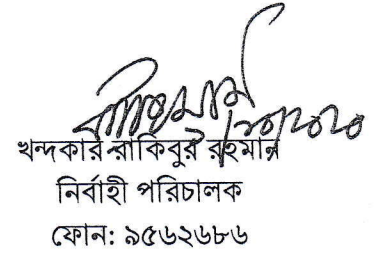 খন্দকার রাকিবুর রহমান
নির্বাহী পরিচালক
ফোন: ৯৫৬২৬৮৬